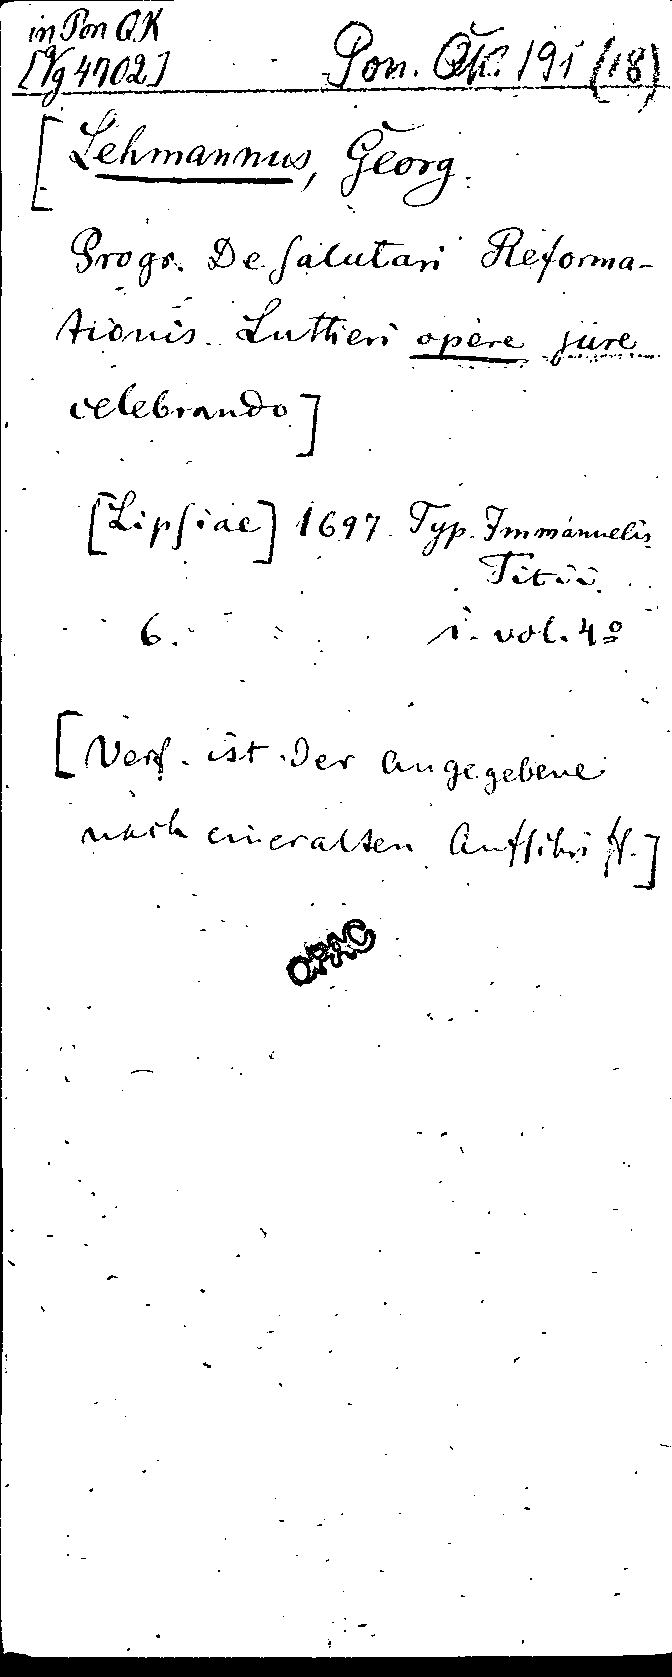 in Pon QK
[Vg 4702]
Pon. QK. 191 (18)
[Lehmannus, Georg.
Progr. De salutari Reforma-
tionis Lutheri opere jure
celebrando]
[Lipsiae] 1697. Typ. Immanuelis
Titii.
6. 1. vol. 4º
[Verf. ist der angegebene
nach einer alten Aufschrift.]
OPAC